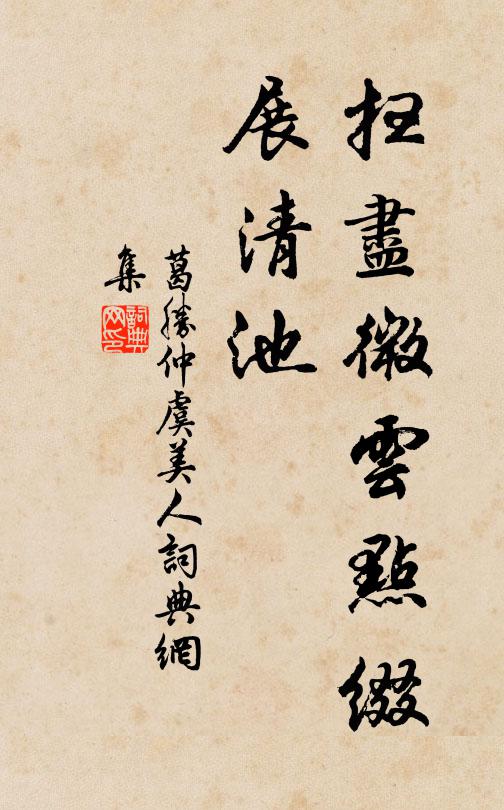 扫盡微雲點綴
展清池
葛勝仲虞美人詞典網
集
詞典
网印